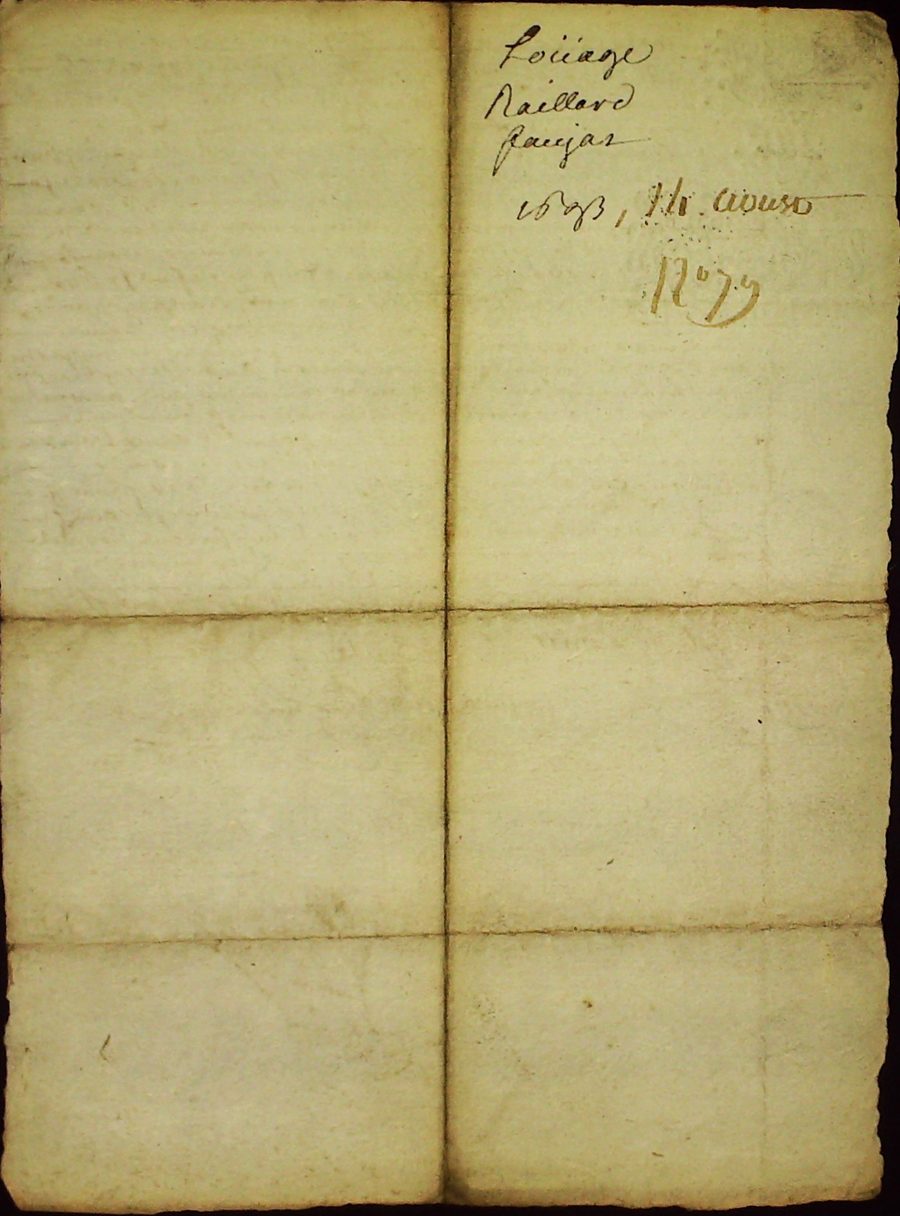 Loüage
Raillard
Faujas
1693, 14 aoust
N° 79